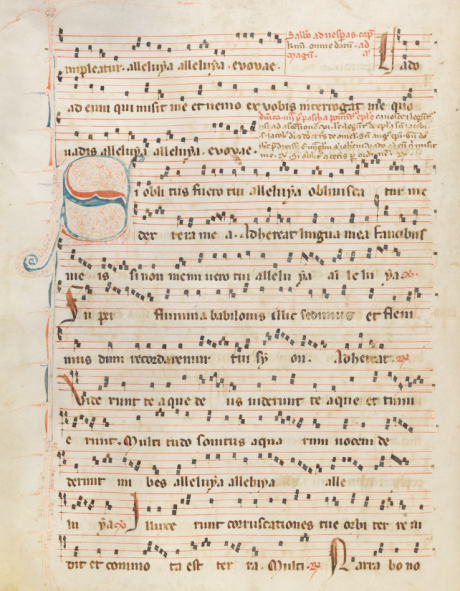 impleatur. alleluya alleluya. evovae.
Sabbo ad vesperas cap
ad
Vado
ad eum qui misit me et nemo ex vobis interrogat me quo
vadis alleluya alleluya. evovae.
Si oblitus fuero tui alleluya oblivisca tur me
dex tera me a. Adhereat lingua mea faucibus
me is si non memi nero tui allelu ya al le lu ya
Su per flumina babilonis illic sedimus et flevi
mus dum recordaremur tui sy on. Adhereat.
Vide runt te aque de us viderunt te aque et timu
e runt. Multi tudo sonitus aqua rum vocem de
derunt nu bes alleluya alleluya alle
lu ya Illuxe runt coruscationes tue orbi ter re vi
dit et commo ta est ter ra. Multi.
Narra bo no